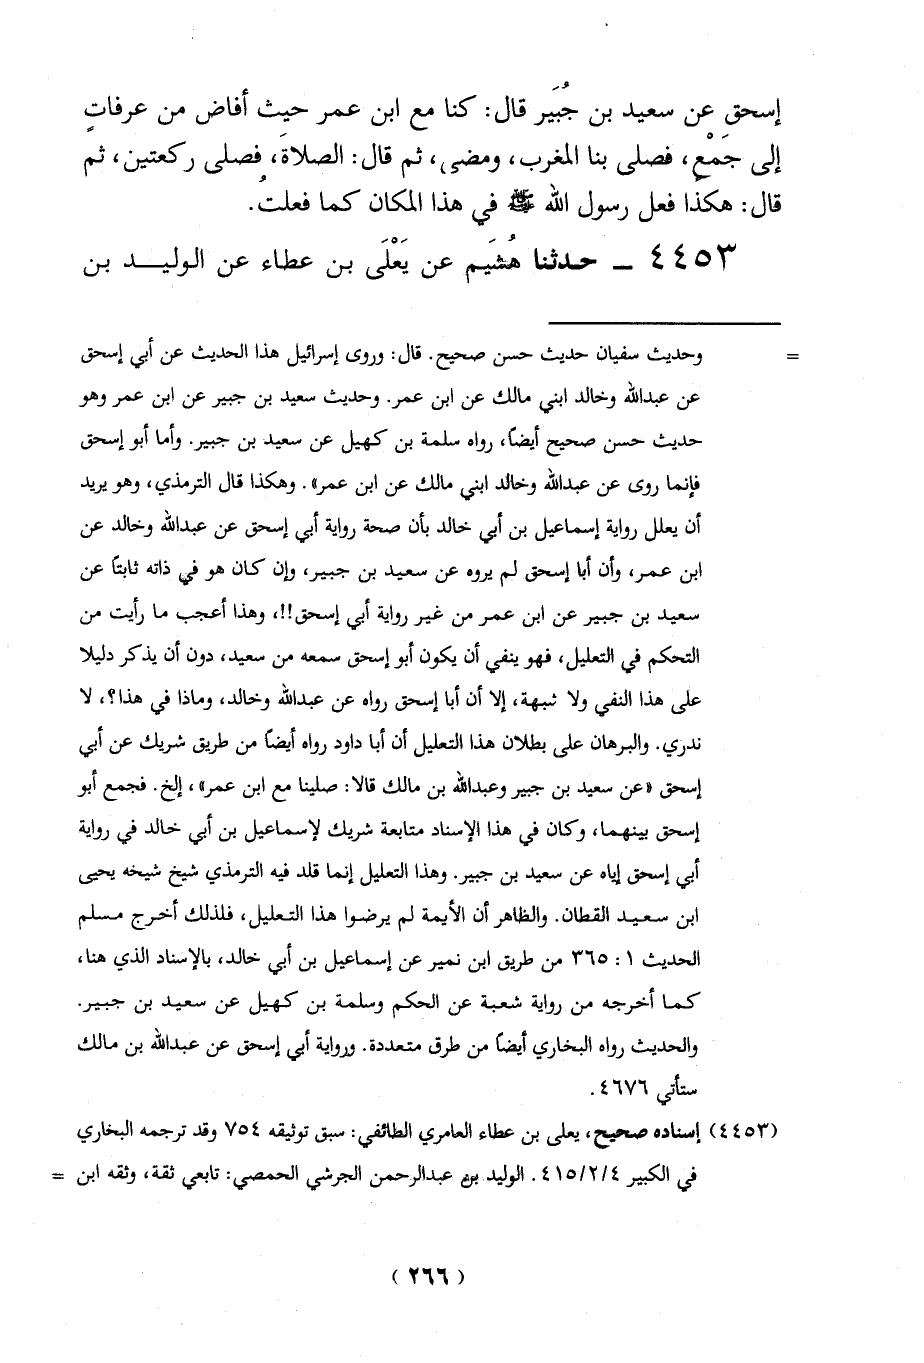 إسحق عن سعيد بن جُبَير قال: كنا مع ابن عمر حيث أفاض من عرفاتٍ
إلى جَمْعٍ، فصلى بنا المغرب، ومضى، ثم قال: الصلاةَ، فصلى ركعتين، ثم
قال: هكذا فعل رسول الله ﷺ في هذا المكان كما فعلتُ.
٤٤٥٣ ــ حدثنا هُشَيم عن يَعْلَى بن عطاء عن الوليـــد بن
= وحديث سفيان حديث حسن صحيح. قال: وروى إسرائيل هذا الحديث عن أبي إسحق
عن عبدالله وخالد ابني مالك عن ابن عمر. وحديث سعيد بن جبير عن ابن عمر وهو
حديث حسن صحيح أيضاً، رواه سلمة بن كهيل عن سعيد بن جبير. وأما أبو إسحق
فإنما روى عن عبدالله وخالد ابني مالك عن ابن عمر». وهكذا قال الترمذي، وهو يريد
أن يعلل رواية إسماعيل بن أبي خالد بأن صحة رواية أبي إسحق عن عبدالله وخالد عن
ابن عمر، وأن أبا إسحق لم يروه عن سعيد بن جبير، وإن كان هو في ذاته ثابتاً عن
سعيد بن جبير عن ابن عمر من غير رواية أبي إسحق!!، وهذا أعجب ما رأيت من
التحكم في التعليل، فهو ينفي أن يكون أبو إسحق سمعه من سعيد، دون أن يذكر دليلا
على هذا النفي ولا شبهة، إلا أن أبا إسحق رواه عن عبدالله وخالد، وماذا في هذا؟، لا
ندري. والبرهان على بطلان هذا التعليل أن أبا داود رواه أيضاً من طريق شريك عن أبي
إسحق «عن سعيد بن جبير وعبدالله بن مالك قالا: صلينا مع ابن عمر»، إلخ. فجمع أبو
إسحق بينهما، وكان في هذا الإسناد متابعة شريك لإسماعيل بن أبي خالد في رواية
أبي إسحق إياه عن سعيد بن جبير. وهذا التعليل إنما قلد فيه الترمذي شيخ شيخه يحيى
ابن سعيد القطان. والظاهر أن الأيمة لم يرضوا هذا التعليل، فلذلك أخرج مسلم
الحديث ١ : ٣٦٥ من طريق ابن نمير عن إسماعيل بن أبي خالد، بالإسناد الذي هنا،
كما أخرجه من رواية شعبة عن الحكم وسلمة بن كهيل عن سعيد بن جبير.
والحديث رواه البخاري أيضاً من طرق متعددة. ورواية أبي إسحق عن عبدالله بن مالك
ستأتي ٤٦٧٦.
(٤٤٥٣) إسناده صحيح، يعلى بن عطاء العامري الطائفي: سبق توثيقه ٧٥٤ وقد ترجمه البخاري
في الكبير ٤١٥/٢/٤. الوليد بن عبدالرحمن الجرشي الحمصي: تابعي ثقة، وثقه ابن =
( ٢٦٦ )